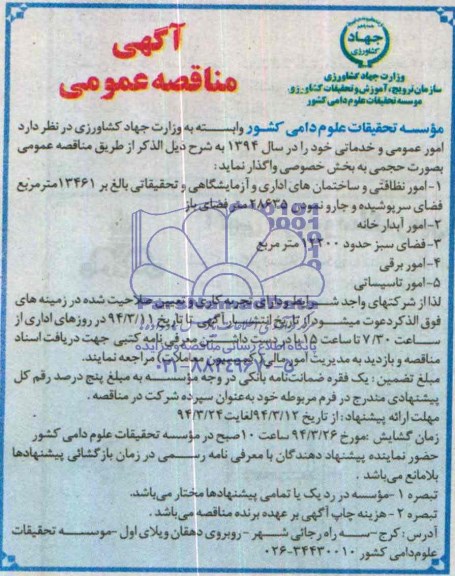 آگهی
مناقصه عمومی
جهاد
کشاورزی
وزارت جهاد کشاورزی
سازمان ترویج، آموزش و تحقیقات کشاورزی
موسسه تحقیقات علوم دامی کشور
مؤسسه تحقیقات علوم دامی کشور وابسته به وزارت جهاد کشاورزی در نظر دارد
امور عمومی و خدماتی خود را در سال ۱۳۹۴ به شرح ذیل الذکر از طریق مناقصه عمومی
بصورت حجمی به بخش خصوصی واگذار نماید:
۱-امور نظافتی و ساختمان های اداری و آزمایشگاهی و تحقیقاتی بالغ بر ۱۳۴۶۱مترمربع
فضای سرپوشیده و جارو نمودن ۲۸۶۳۵ متر فضای باز
۲-امور آبدار خانه
۳-فضای سبز حدود ۱۴۲۰۰ متر مربع
۴-امور برقی
۵-امور تاسیساتی
لذا از شرکتهای واجد شرایط و دارای تجربه کاری و تعیین صلاحیت شده در زمینه های
فوق الذکر دعوت میشود از تاریخ انتشار آگهی تا تاریخ ۹۴/۳/۱۱ در روزهای اداری از
ساعت ۷/۳۰ تا ساعت ۱۵ با در دست داشتن معرفی نامه کتبی جهت دریافت اسناد
مناقصه و بازدید به مدیریت امور مالی (کمیسیون معاملات) مراجعه نمایند.
پایگاه اطلاع رسانی مناقصه و مزایده
۰۲۱-۸۸۳۴۹۶۷۰-۵
مبلغ تضمین : یک فقره ضمانت‌نامه بانکی در وجه مؤسسه به مبلغ پنج درصد رقم کل
پیشنهادی مندرج در فرم مربوطه خود به‌عنوان سپرده شرکت در مناقصه .
مهلت ارائه پیشنهاد: از تاریخ ۹۴/۳/۱۲لغایت ۹۴/۳/۲۴
زمان گشایش :مورخ ۹۴/۳/۲۶ ساعت ۱۰ صبح در مؤسسه تحقیقات علوم دامی کشور
حضور نماینده پیشنهاد دهندگان با معرفی نامه رسمی در زمان بازگشائی پیشنهادها
بلامانع می‌باشد .
تبصره ۱ -مؤسسه در رد یک یا تمامی پیشنهادها مختار می‌باشد.
تبصره ۲ - هزینه چاپ آگهی بر عهده برنده مناقصه می‌باشد .
آدرس : کرج-سه راه رجائی شهر - روبروی دهقان ویلای اول -موسسه تحقیقات
علوم‌دامی کشور ۳۴۴۳۰۰۱۰-۰۲۶